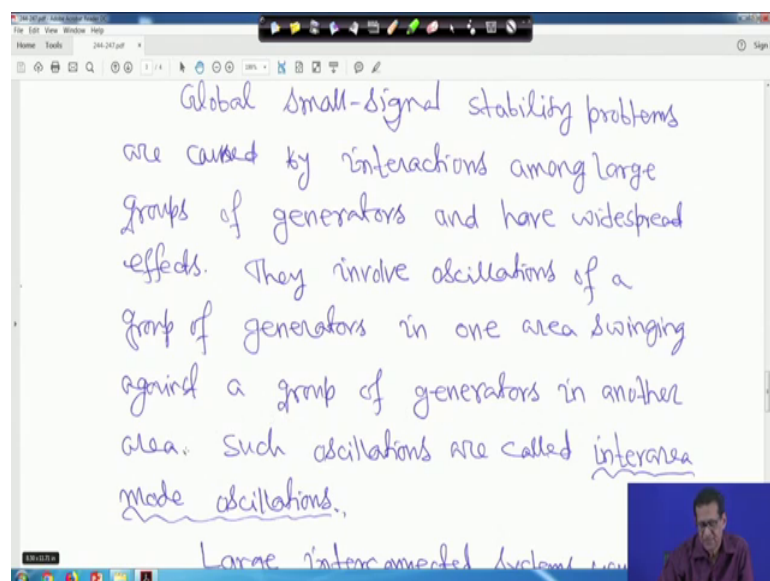 244-247.pdf - Adobe Acrobat Reader DC
File Edit View Window Help
Home Tools 244-247.pdf × Sign
1 / 4
Global small-signal stability problems
are caused by interactions among large
groups of generators and have widespread
effects. They involve oscillations of a
group of generators in one area swinging
against a group of generators in another
area. Such oscillations are called interarea
mode oscillations.
Large interconnected systems
8.30 x 11.71 in